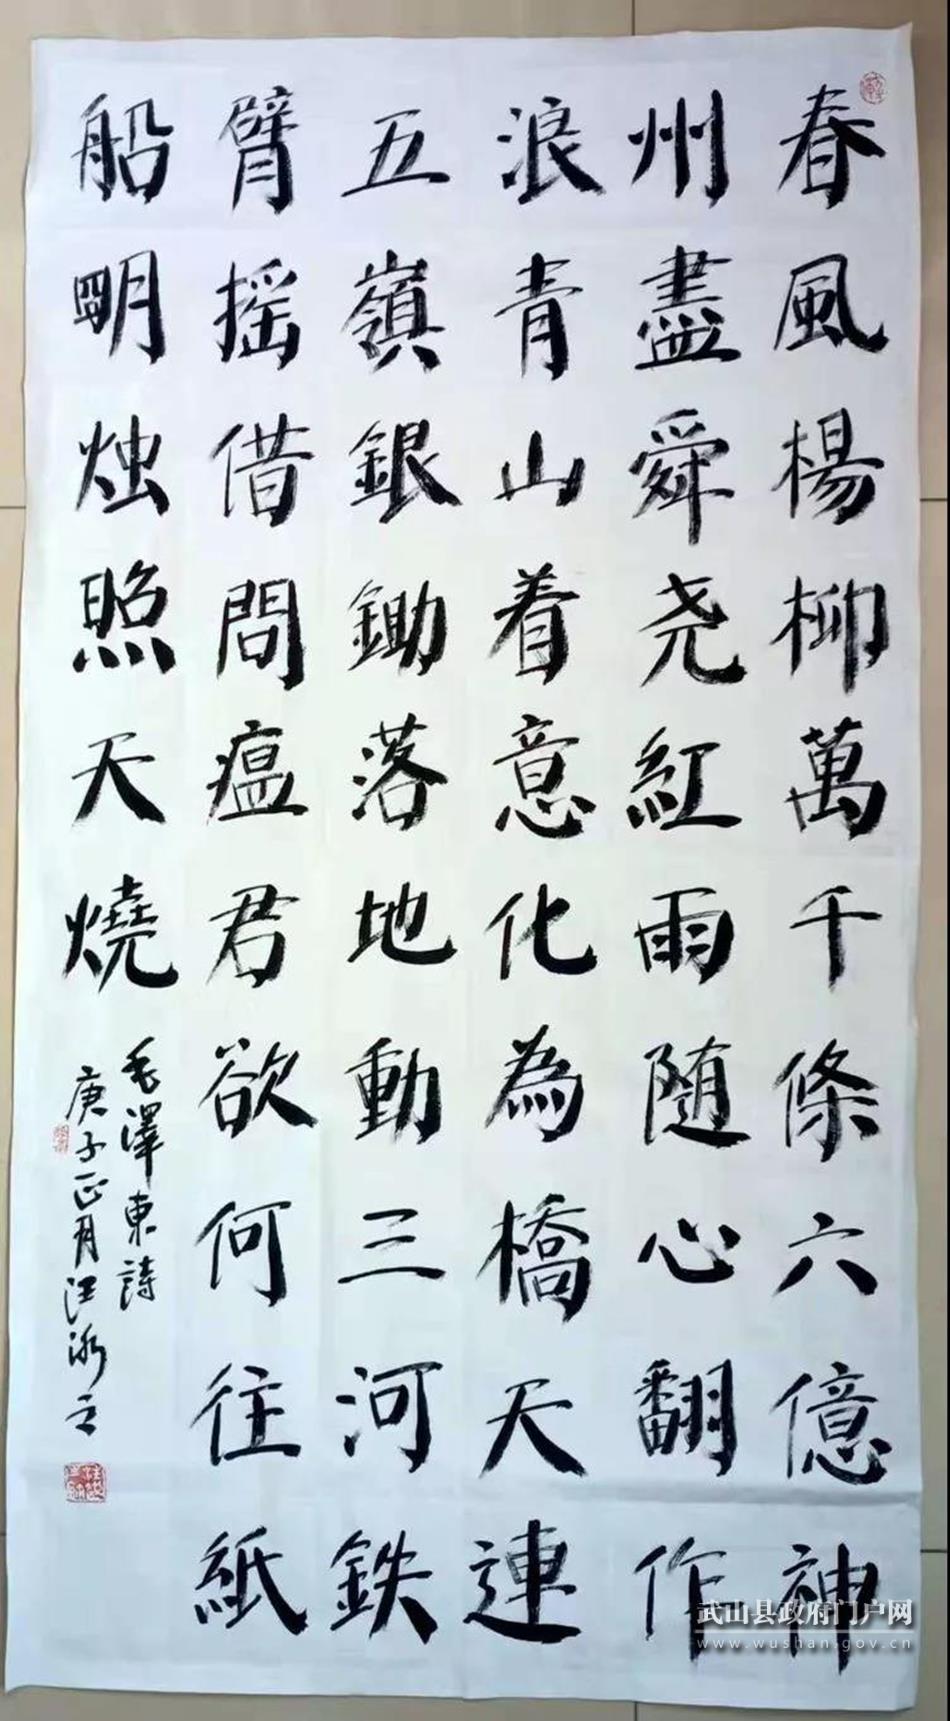 春風楊柳萬千條六億神
州盡舜尧紅雨随心翻作
浪青山着意化為橋天連
五嶺銀鋤落地動三河鉄
臂摇借問瘟君欲何往紙
船明烛照天燒
毛澤東詩
庚子正月汪冰之
武山县政府门户网
www.wushan.gov.cn